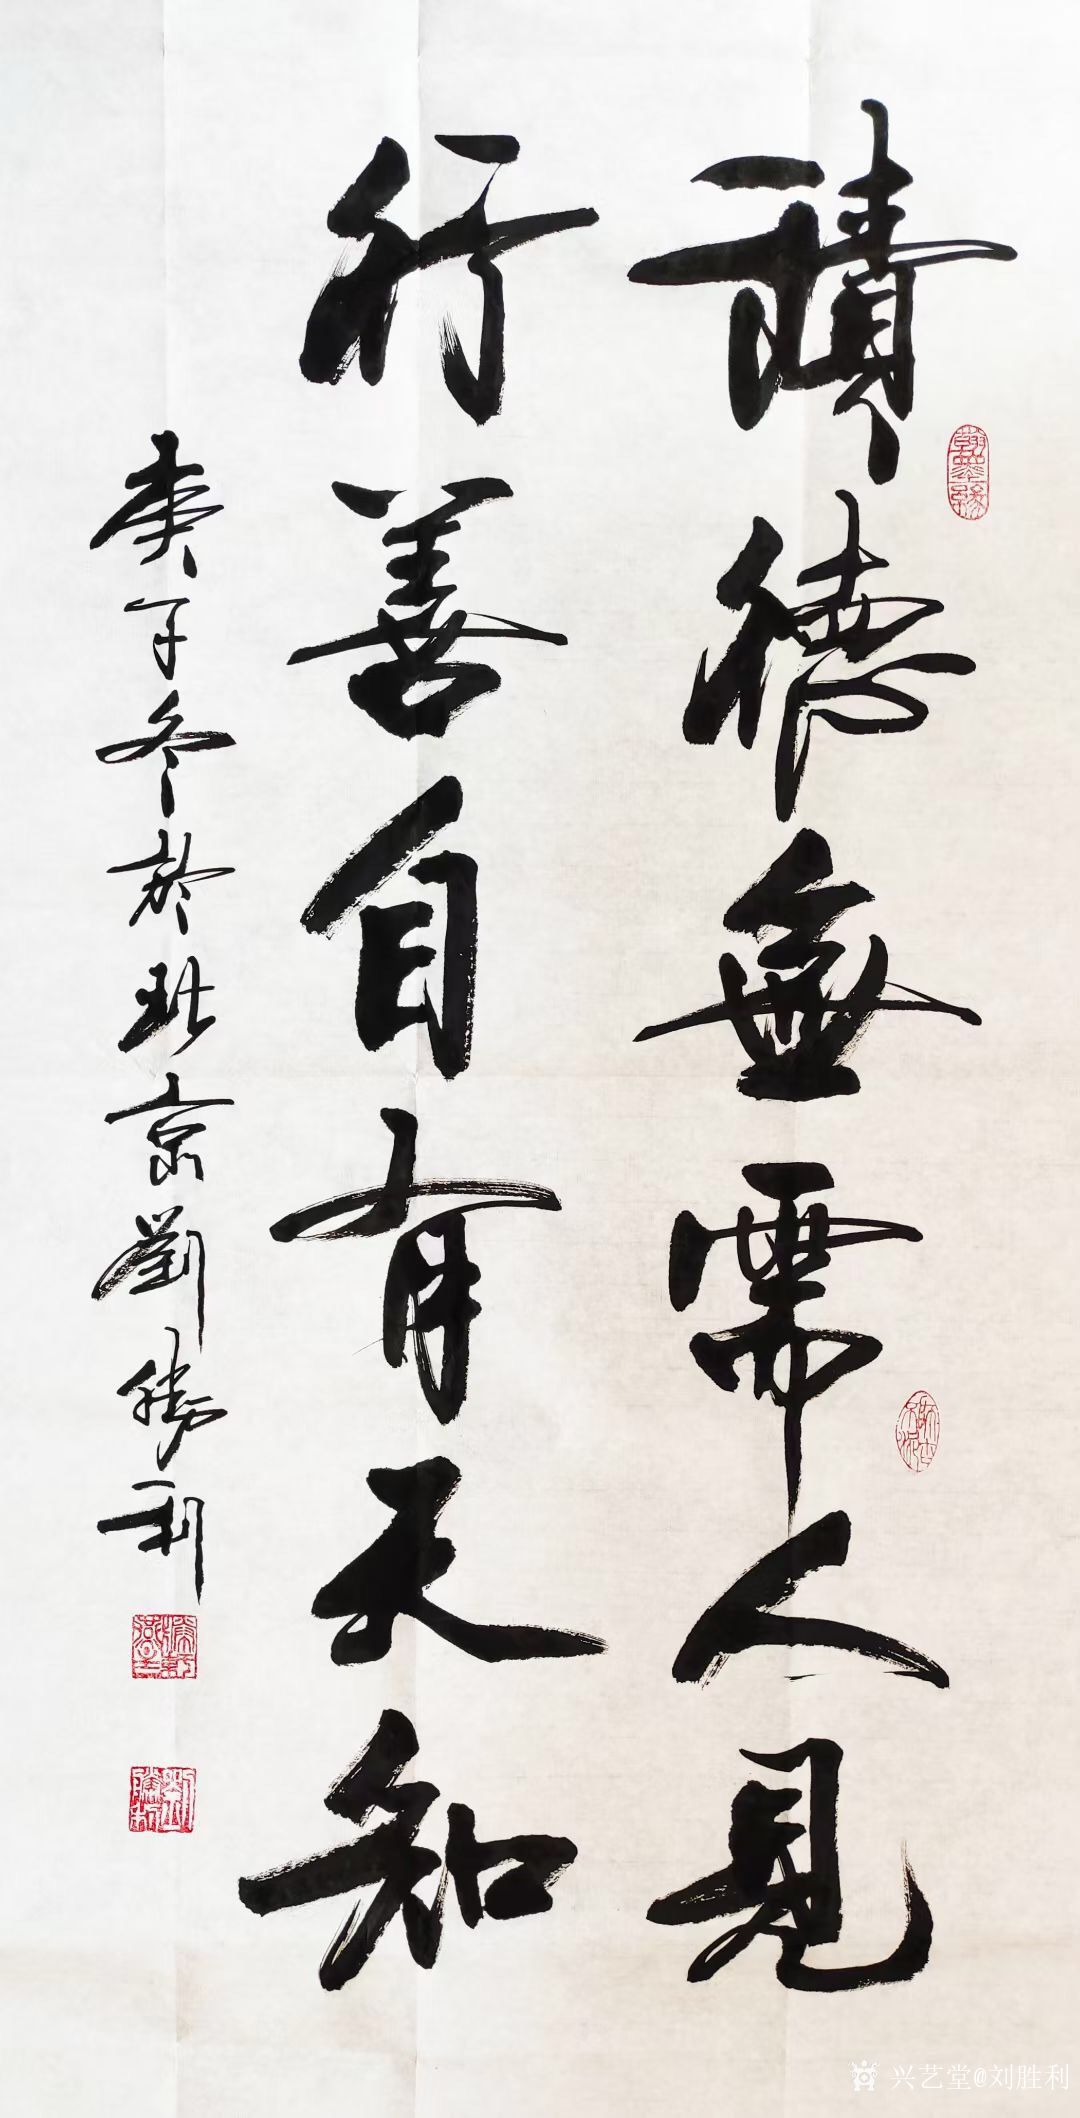 積德無需人見
行善自有天知
庚子冬於北京劉勝利
翰墨緣
劉勝利
兴艺堂@刘胜利